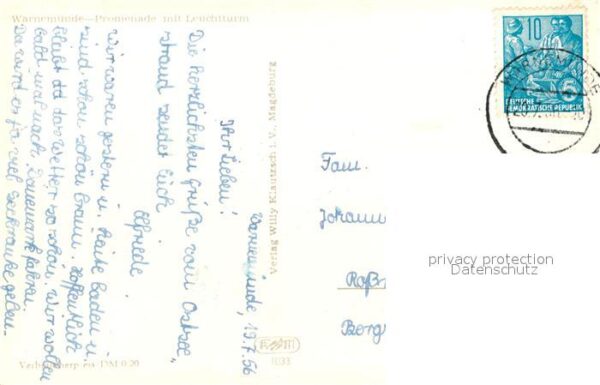 Warnemünde—Promenade mit Leuchtturm
Warnemünde, 19.7.56
Ihr Lieben!
Die herzlichsten Grüße vom Ostsee,
strand sendet Euch
Elfriede.
Wir waren gestern u. heute baden u.
sind schon schön braun. Hoffentlich
bleibt das Wetter so schön. Wir wollen
bald mal nach Dänemark fahren.
Da wird es für viel Seekranke geben.
Verlag Willy Klautzsch i. V., Magdeburg
Verbraucherpreis DM 0.20
10
5
DEUTSCHE
DEMOKRATISCHE REPUBLIK
WARNEMÜNDE
Fam.
Johann
Roß
Borg
privacy protection
Datenschutz